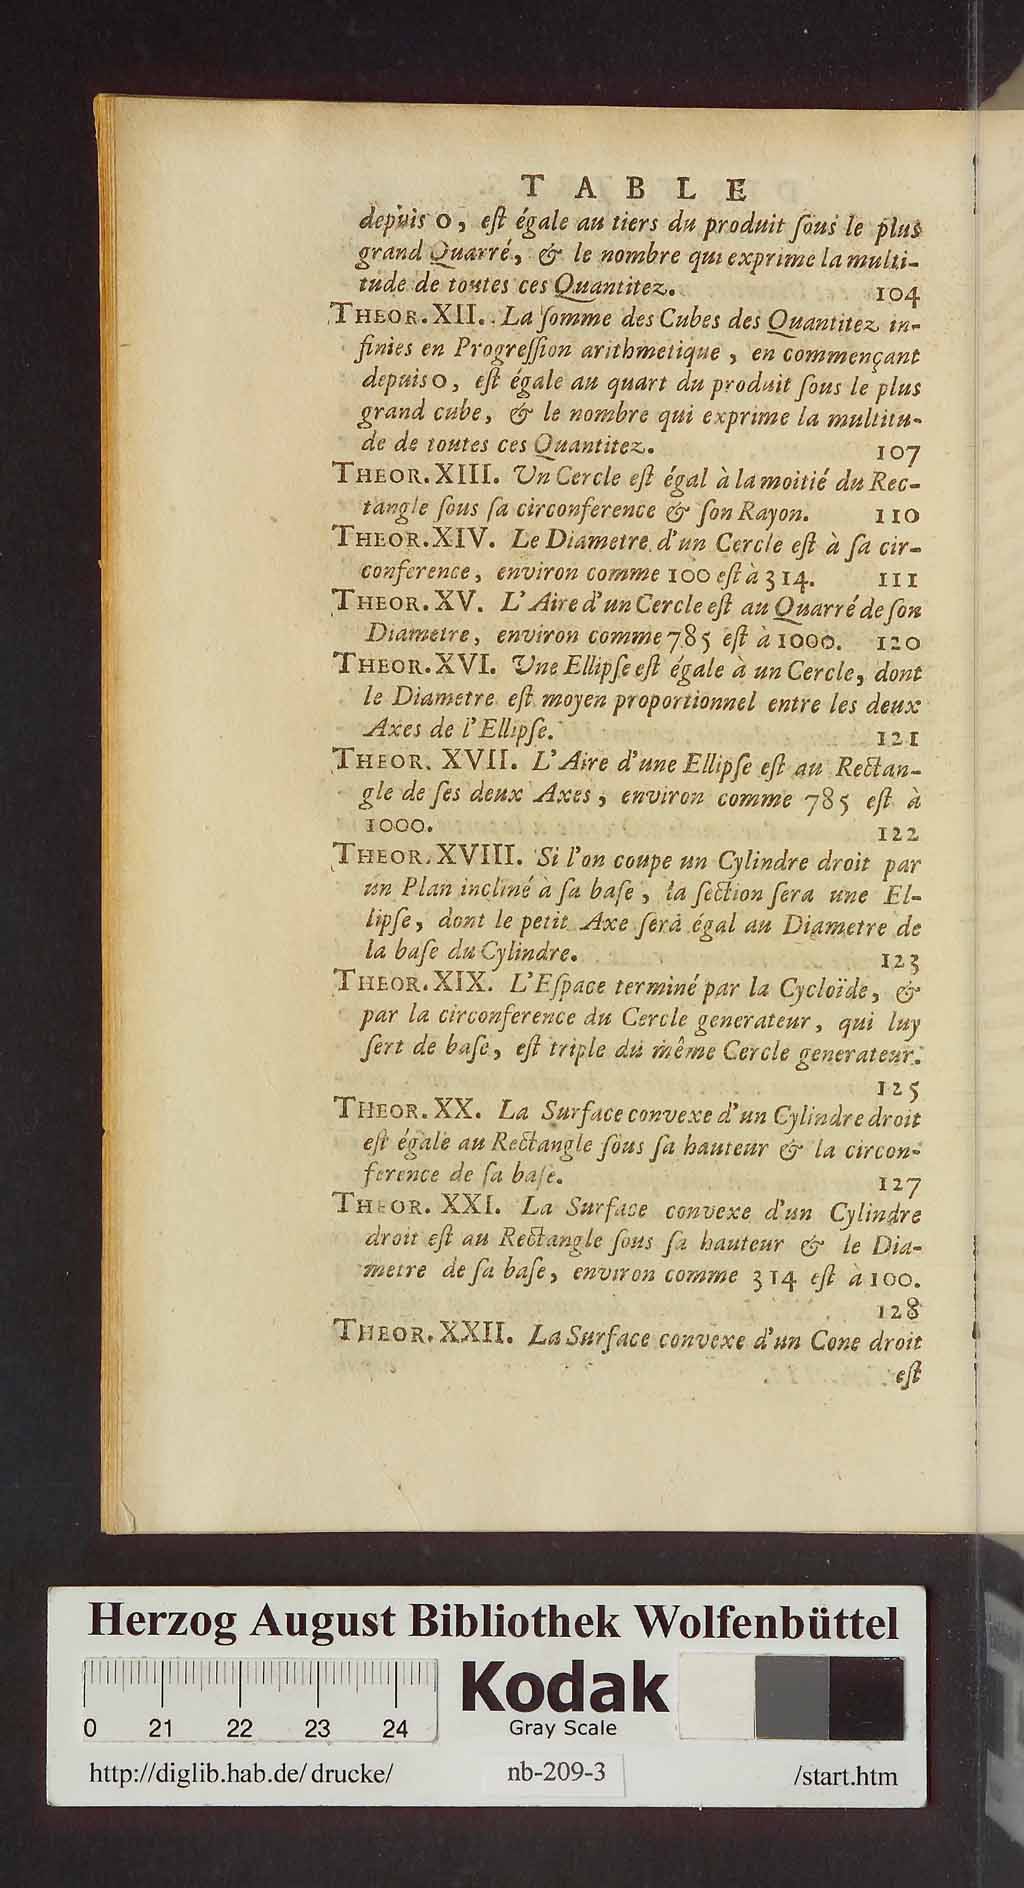 TABLE
depuis 0, eſt égale au tiers du produit ſous le plus
grand Quarré, & le nombre qui exprime la multi-
tude de toutes ces Quantitez. 104
THEOR. XII. La ſomme des Cubes des Quantitez in-
finies en Progreſſion arithmetique, en commençant
depuis 0, eſt égale au quart du produit ſous le plus
grand cube, & le nombre qui exprime la multitu-
de de toutes ces Quantitez. 107
THEOR. XIII. Un Cercle eſt égal à la moitié du Rec-
tangle ſous ſa circonference & ſon Rayon. 110
THEOR. XIV. Le Diametre d'un Cercle eſt à ſa cir-
conference, environ comme 100 eſt à 314. 111
THEOR. XV. L'Aire d'un Cercle eſt au Quarré de ſon
Diametre, environ comme 785 eſt à 1000. 120
THEOR. XVI. Une Ellipſe eſt égale à un Cercle, dont
le Diametre eſt moyen proportionnel entre les deux
Axes de l'Ellipſe. 121
THEOR. XVII. L'Aire d'une Ellipſe eſt au Rectan-
gle de ſes deux Axes, environ comme 785 eſt à
1000. 122
THEOR. XVIII. Si l'on coupe un Cylindre droit par
un Plan incliné à ſa baſe, la ſection ſera une El-
lipſe, dont le petit Axe ſera égal au Diametre de
la baſe du Cylindre. 123
THEOR. XIX. L'Eſpace terminé par la Cycloïde, &
par la circonference du Cercle generateur, qui luy
ſert de baſe, eſt triple du même Cercle generateur.
125
THEOR. XX. La Surface convexe d'un Cylindre droit
eſt égale au Rectangle ſous ſa hauteur & la circon-
ference de ſa baſe. 127
THEOR. XXI. La Surface convexe d'un Cylindre
droit eſt au Rectangle ſous ſa hauteur & le Dia-
metre de ſa baſe, environ comme 314 eſt à 100.
128
THEOR. XXII. La Surface convexe d'un Cone droit
eſt
Herzog August Bibliothek Wolfenbüttel
0 21 22 23 24
Kodak
Gray Scale
http://diglib.hab.de/drucke/ nb-209-3 /start.htm